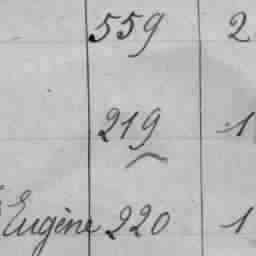 559 2
219 1
Eugène 220 1